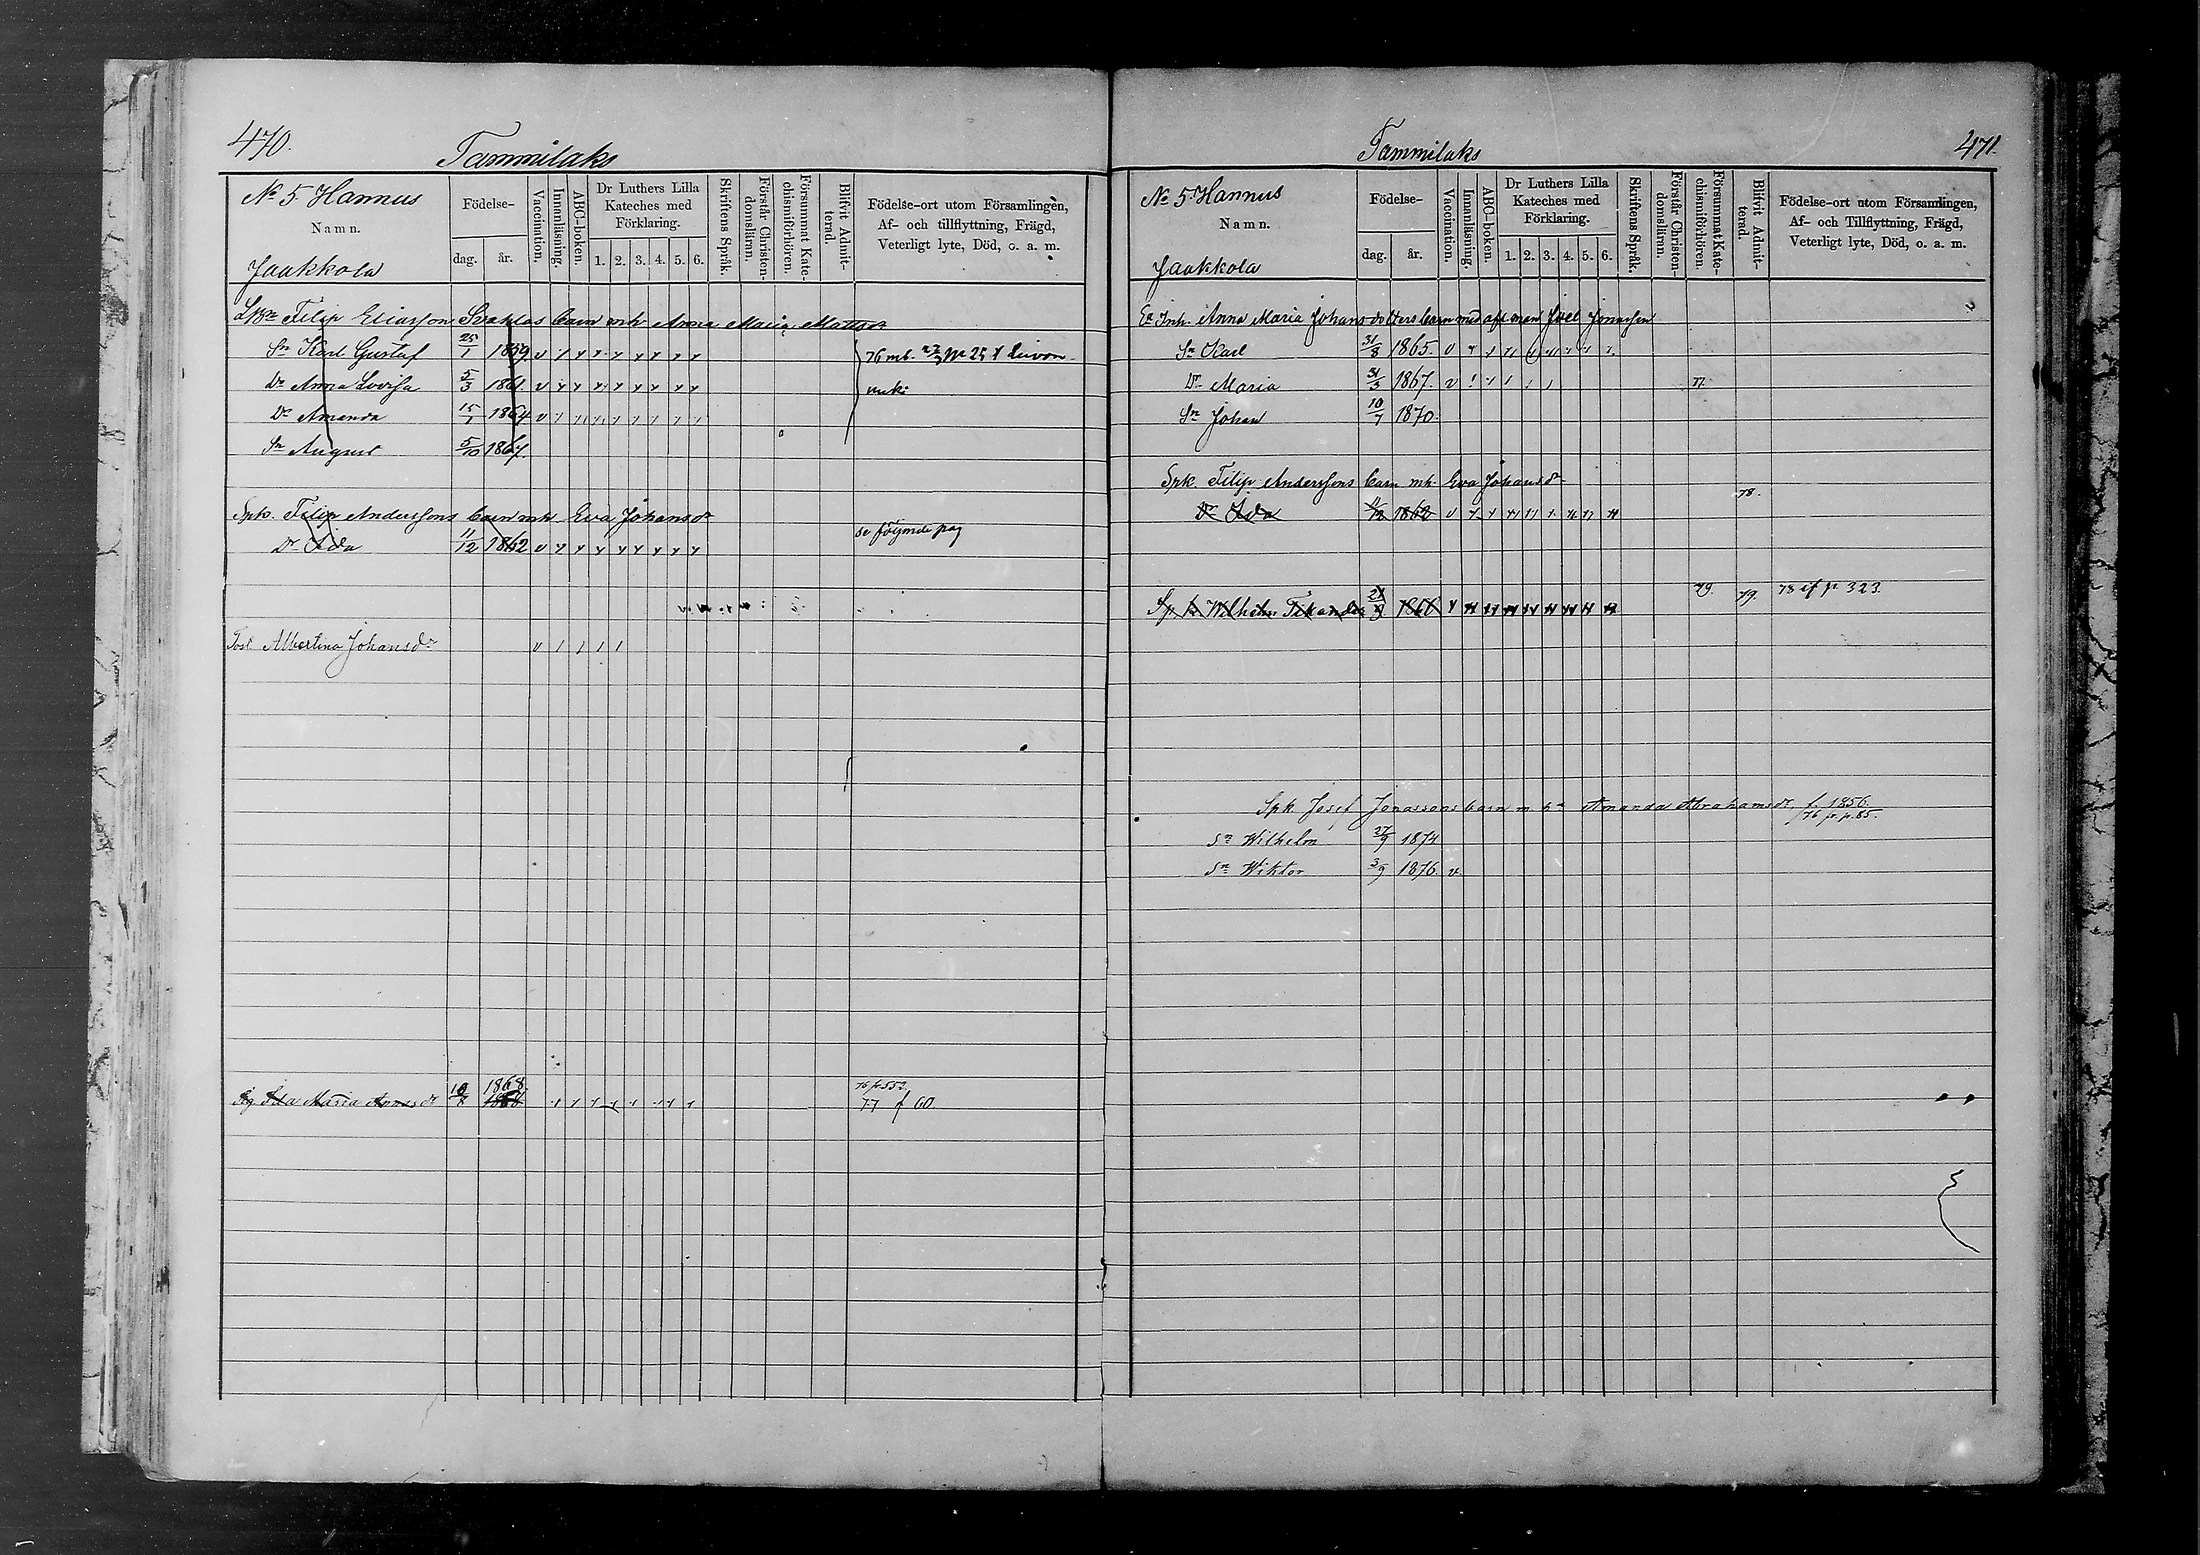 470.
Tammilaks
No 5. Hannus
Namn.
Jaakkola
Födelse-
dag.
år.
Vaccination.
Innanläsning.
ABC-boken.
Dr Luthers Lilla
Kateches med
Förklaring.
1. 2. 3. 4. 5. 6.
Skriftens Språk.
Förstår Christen-
domslärn.
Försummat Kate-
chismiförhören.
Blifvit Admit-
terad.
Födelse-ort utom Församlingen,
Af- och tillflyttning, Frägd,
Veterligt lyte, Död, o. a. m.
Filip Eliasson barn mh Anna Maria
Sn Karl Gustaf 25/1 1859 v
Dr Anna Lovisa 5/3 1861. v
Dr Amanda 15/1 1864 v
Sn August 5/10 1867.
Spk. Filip Anderssons barn mh. Eva Johansdr
Dr Ida 11/12 1862 v se följande pag
Albertina Johansdr v
76 fr 552
Ida Maria 10/8 1868.
77 f 60
Tammilaks
471.
No 5. Hannus
Namn.
Jaakkola
Födelse-
dag.
år.
Vaccination.
Innanläsning.
ABC-boken.
Dr Luthers Lilla
Kateches med
Förklaring.
1. 2. 3. 4. 5. 6.
Skriftens Språk.
Förstår Christen-
domslärn.
Försummat Kate-
chismiförhören.
Blifvit Admit-
terad.
Födelse-ort utom Församlingen,
Af- och Tillflyttning, Frägd,
Veterligt lyte, Död, o. a. m.
Anna Maria Johansdotters barn med
Sn Karl 31/8 1865. v
Dr Maria 31/3 1867. v 77.
Sn Johan 10/7 1870.
Spk. Filip Anderssons barn mh. Eva Johansdr
78.
Dr Ida 11/12 1862 v
79. 79. 78 ef p 323.
Wilhelm
Spk Josef Jonassons barn m Amanda Abrahamsdr, f. 1856.
76 fr. p. 85.
Sn Wilhelm 27/9 1874
Sn Wiktor 3/9 1876. v